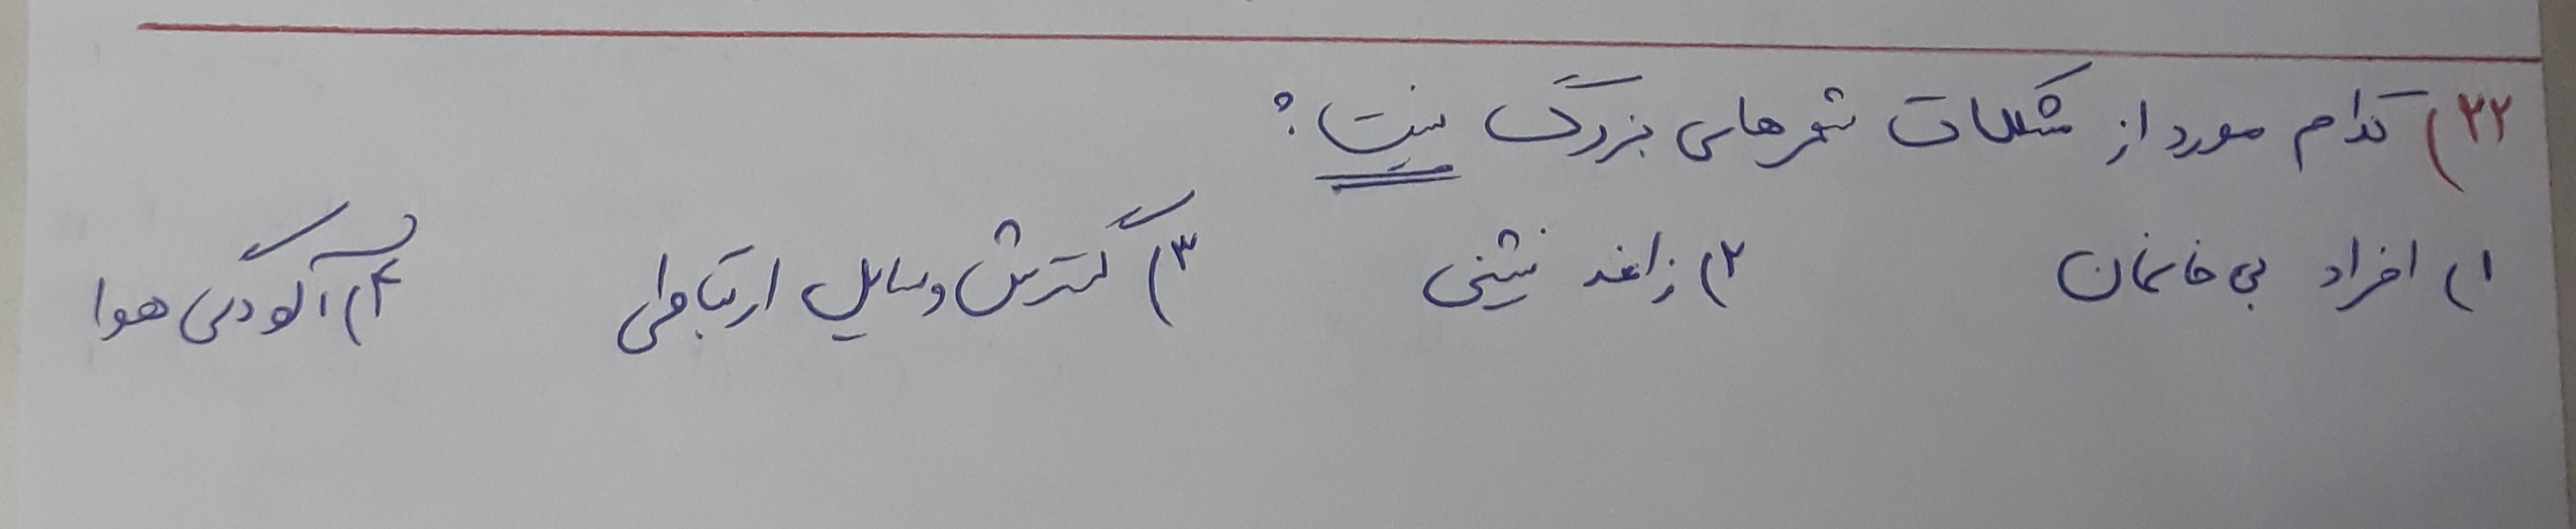 ۲۲) کدام مورد از مشکلات شهرهای بزرگ نیست؟
۱) افراد بی خانمان ۲) زاغه نشینی ۳) گسترش وسایل ارتباطی ۴) آلودگی هوا